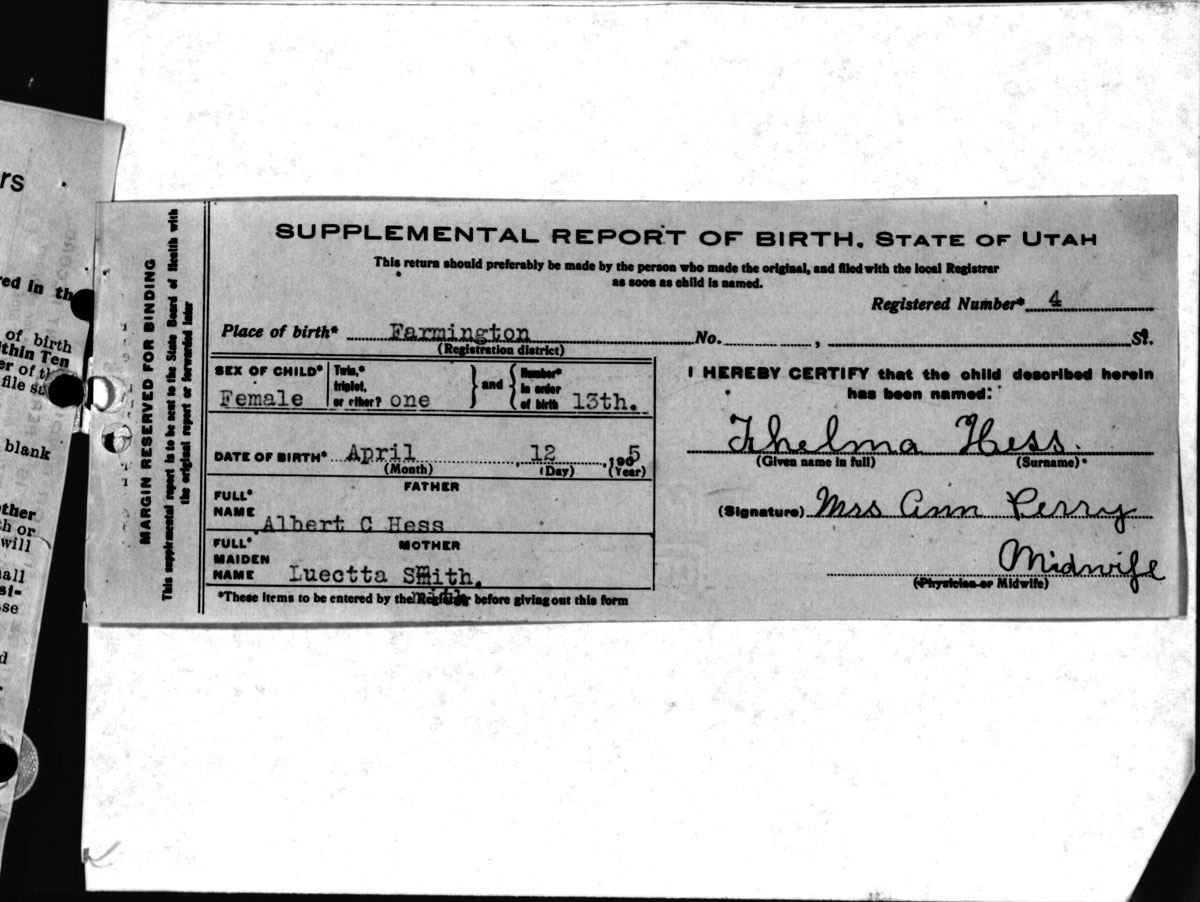 rs
red in th
of birth
ithin Ten
er of th
file sa
blank
other
th or
will
all
si-
se
d
MARGIN RESERVED FOR BINDING
This supplemental report is to be sent to the State Board of Health with
the original report or forwarded later
SUPPLEMENTAL REPORT OF BIRTH. STATE OF UTAH
This return should preferably be made by the person who made the original, and filed with the local Registrar
as soon as child is named.
Registered Number* 4
Place of birth* Farmington No. , St.
(Registration district)
SEX OF CHILD* Female
Twin,* triplet, or other? one } and { Number* in order of birth 13th.
DATE OF BIRTH* April 12 , 1905
(Month) (Day) (Year)
FATHER
FULL*
NAME Albert C Hess
FULL* MOTHER
MAIDEN
NAME Luectta Smith.
*These items to be entered by the Registrar before giving out this form
I HEREBY CERTIFY that the child described herein
has been named:
Thelma Hess.
(Given name in full) (Surname)*
(Signature) Mrs Ann Perry
Midwife
(Physician or Midwife)